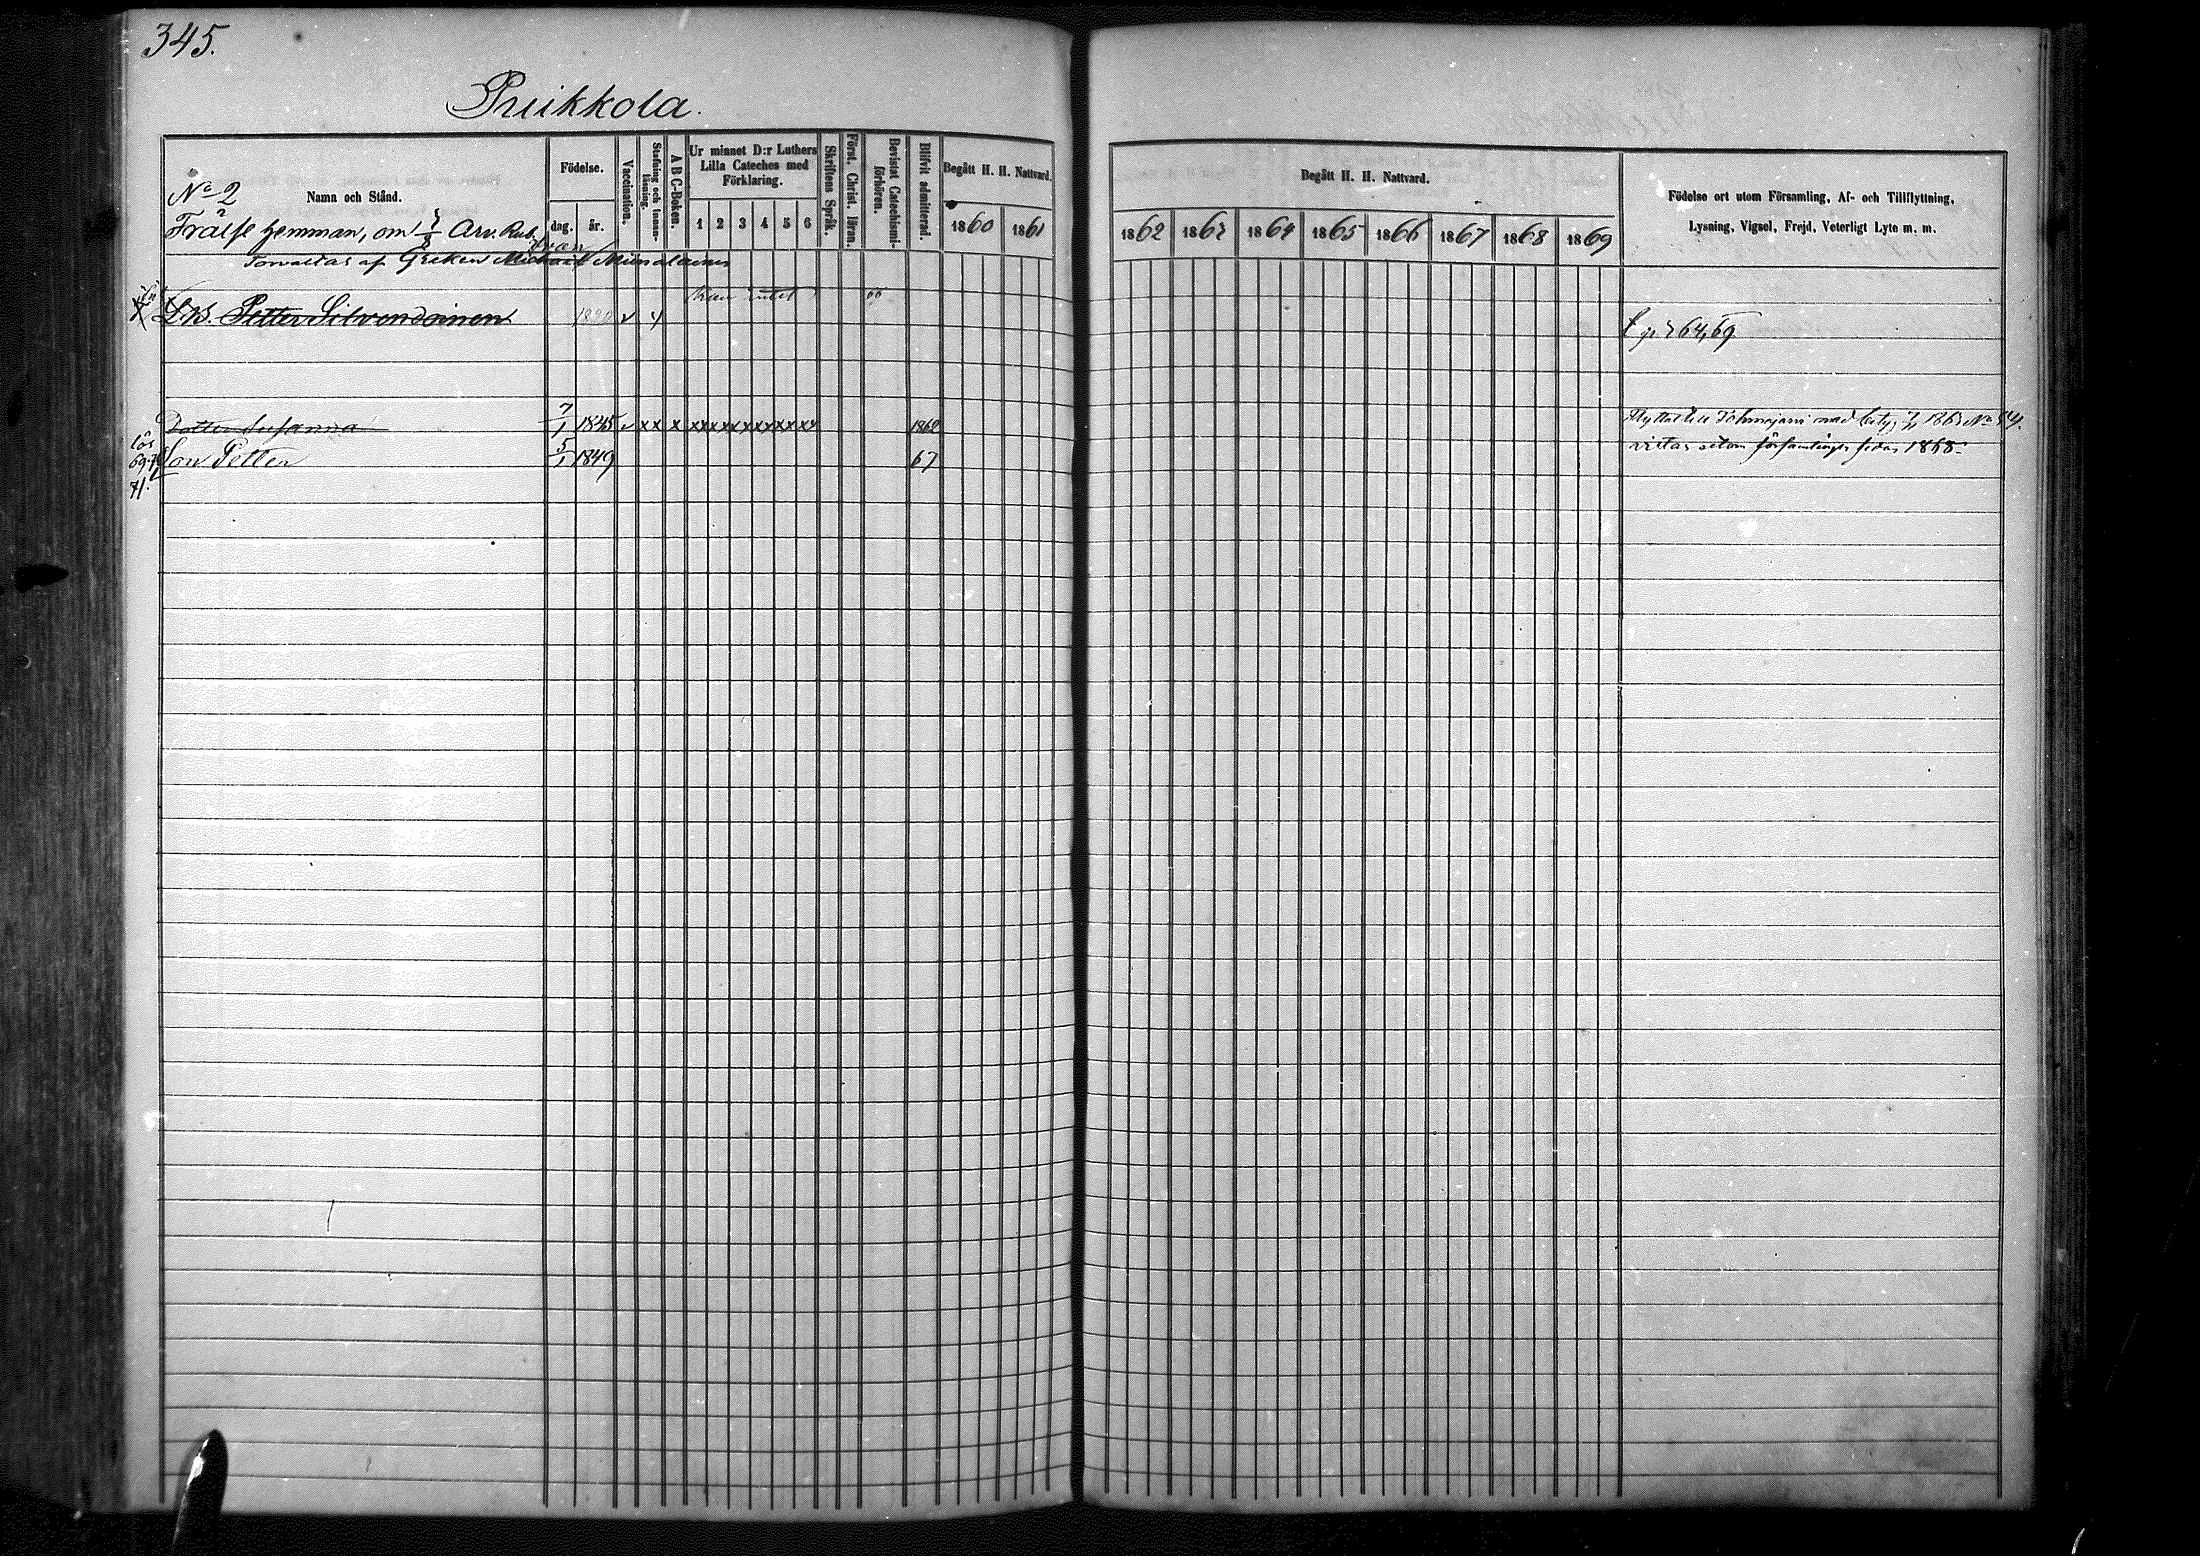 345.
Priikkola.
Nama och Stånd.
Födelse.
dag. år.
Vaccination.
Stafning och innanläsning.
A B C-Boken.
Ur minnet D:r Luthers
Lilla Cateches med
Förklaring.
1 2 3 4 5 6
Skriftens Språk.
Först. Christ. läran.
Bevistat Catechismiförhören.
Blifvit admitterad.
Begått H. H. Nattvard.
1860 1861
Begått H. H. Nattvard.
1862 1863 1864 1865 1866 1867 1868 1869
Födelse ort utom Församling, Af- och Tillflyttning,
Lysning, Vigsel, Frejd, Veterligt Lyte m. m.
No 2
Frälse hemman, om 1/8 Arv. Rub.
Ivan
Forvaltas af Greken Michael
kan intet
Lb. Petter Silvendoinen v
64, 69
Dotter Susanna 7/1 1845 v x x x xxxxxxxxxxxx 1862
Flyttat till Tohmajärvi med
lös
69.70 Son Petter 5/1 1849 67
vistas utom församlingen sedan 1868.
71.